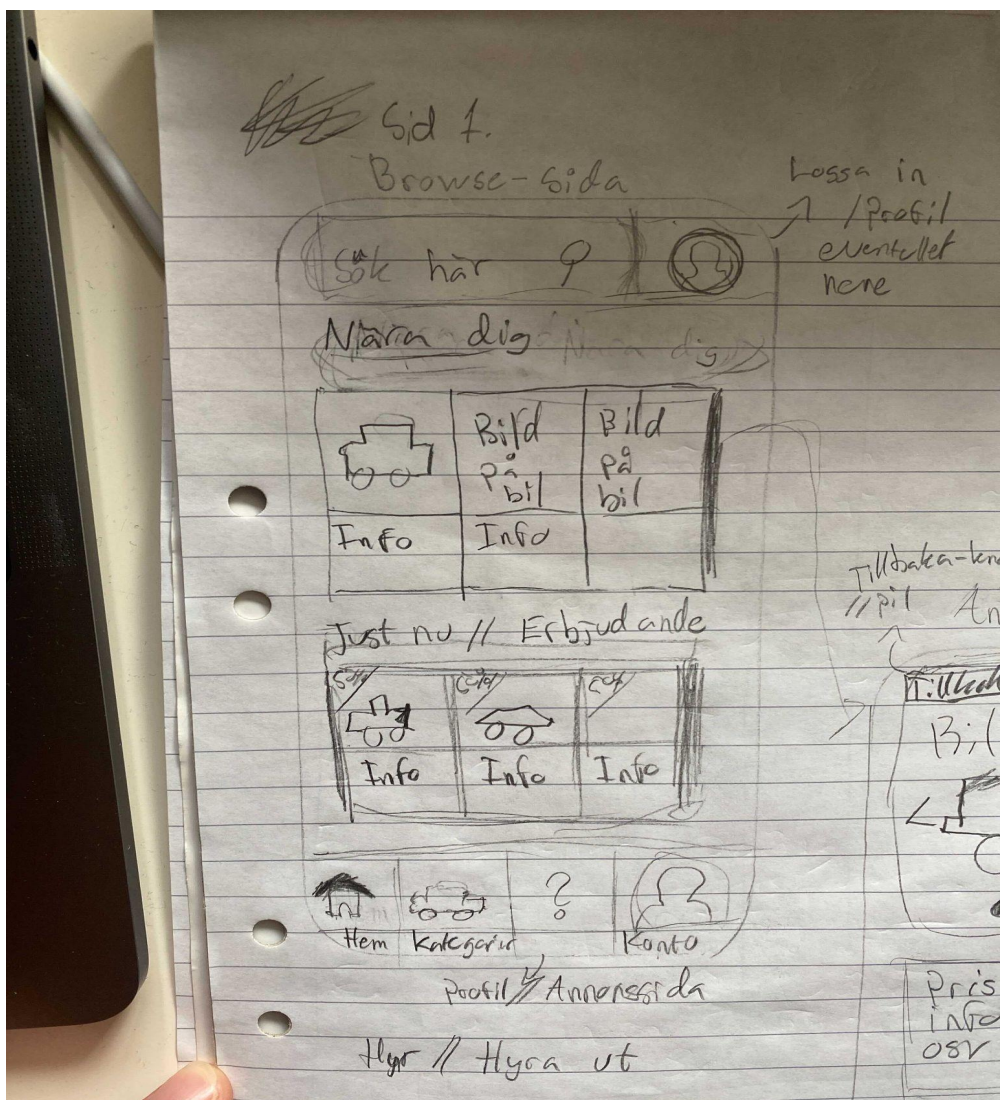 Sid 1.
Browse-sida
Lossa in
/profil
eventullet
nere
Sök här
Nära dig
Nära dig
Bild på bil
Bild på bil
Info
Info
Just nu // Erbjudande
Info
Info
Info
?
Hem
Kategorier
Konto
Profil // Annonssida
Hyr // Hyra ut
Tillbaka-kn
// pil
An
Tillbak
Bil
Pris
info
osv